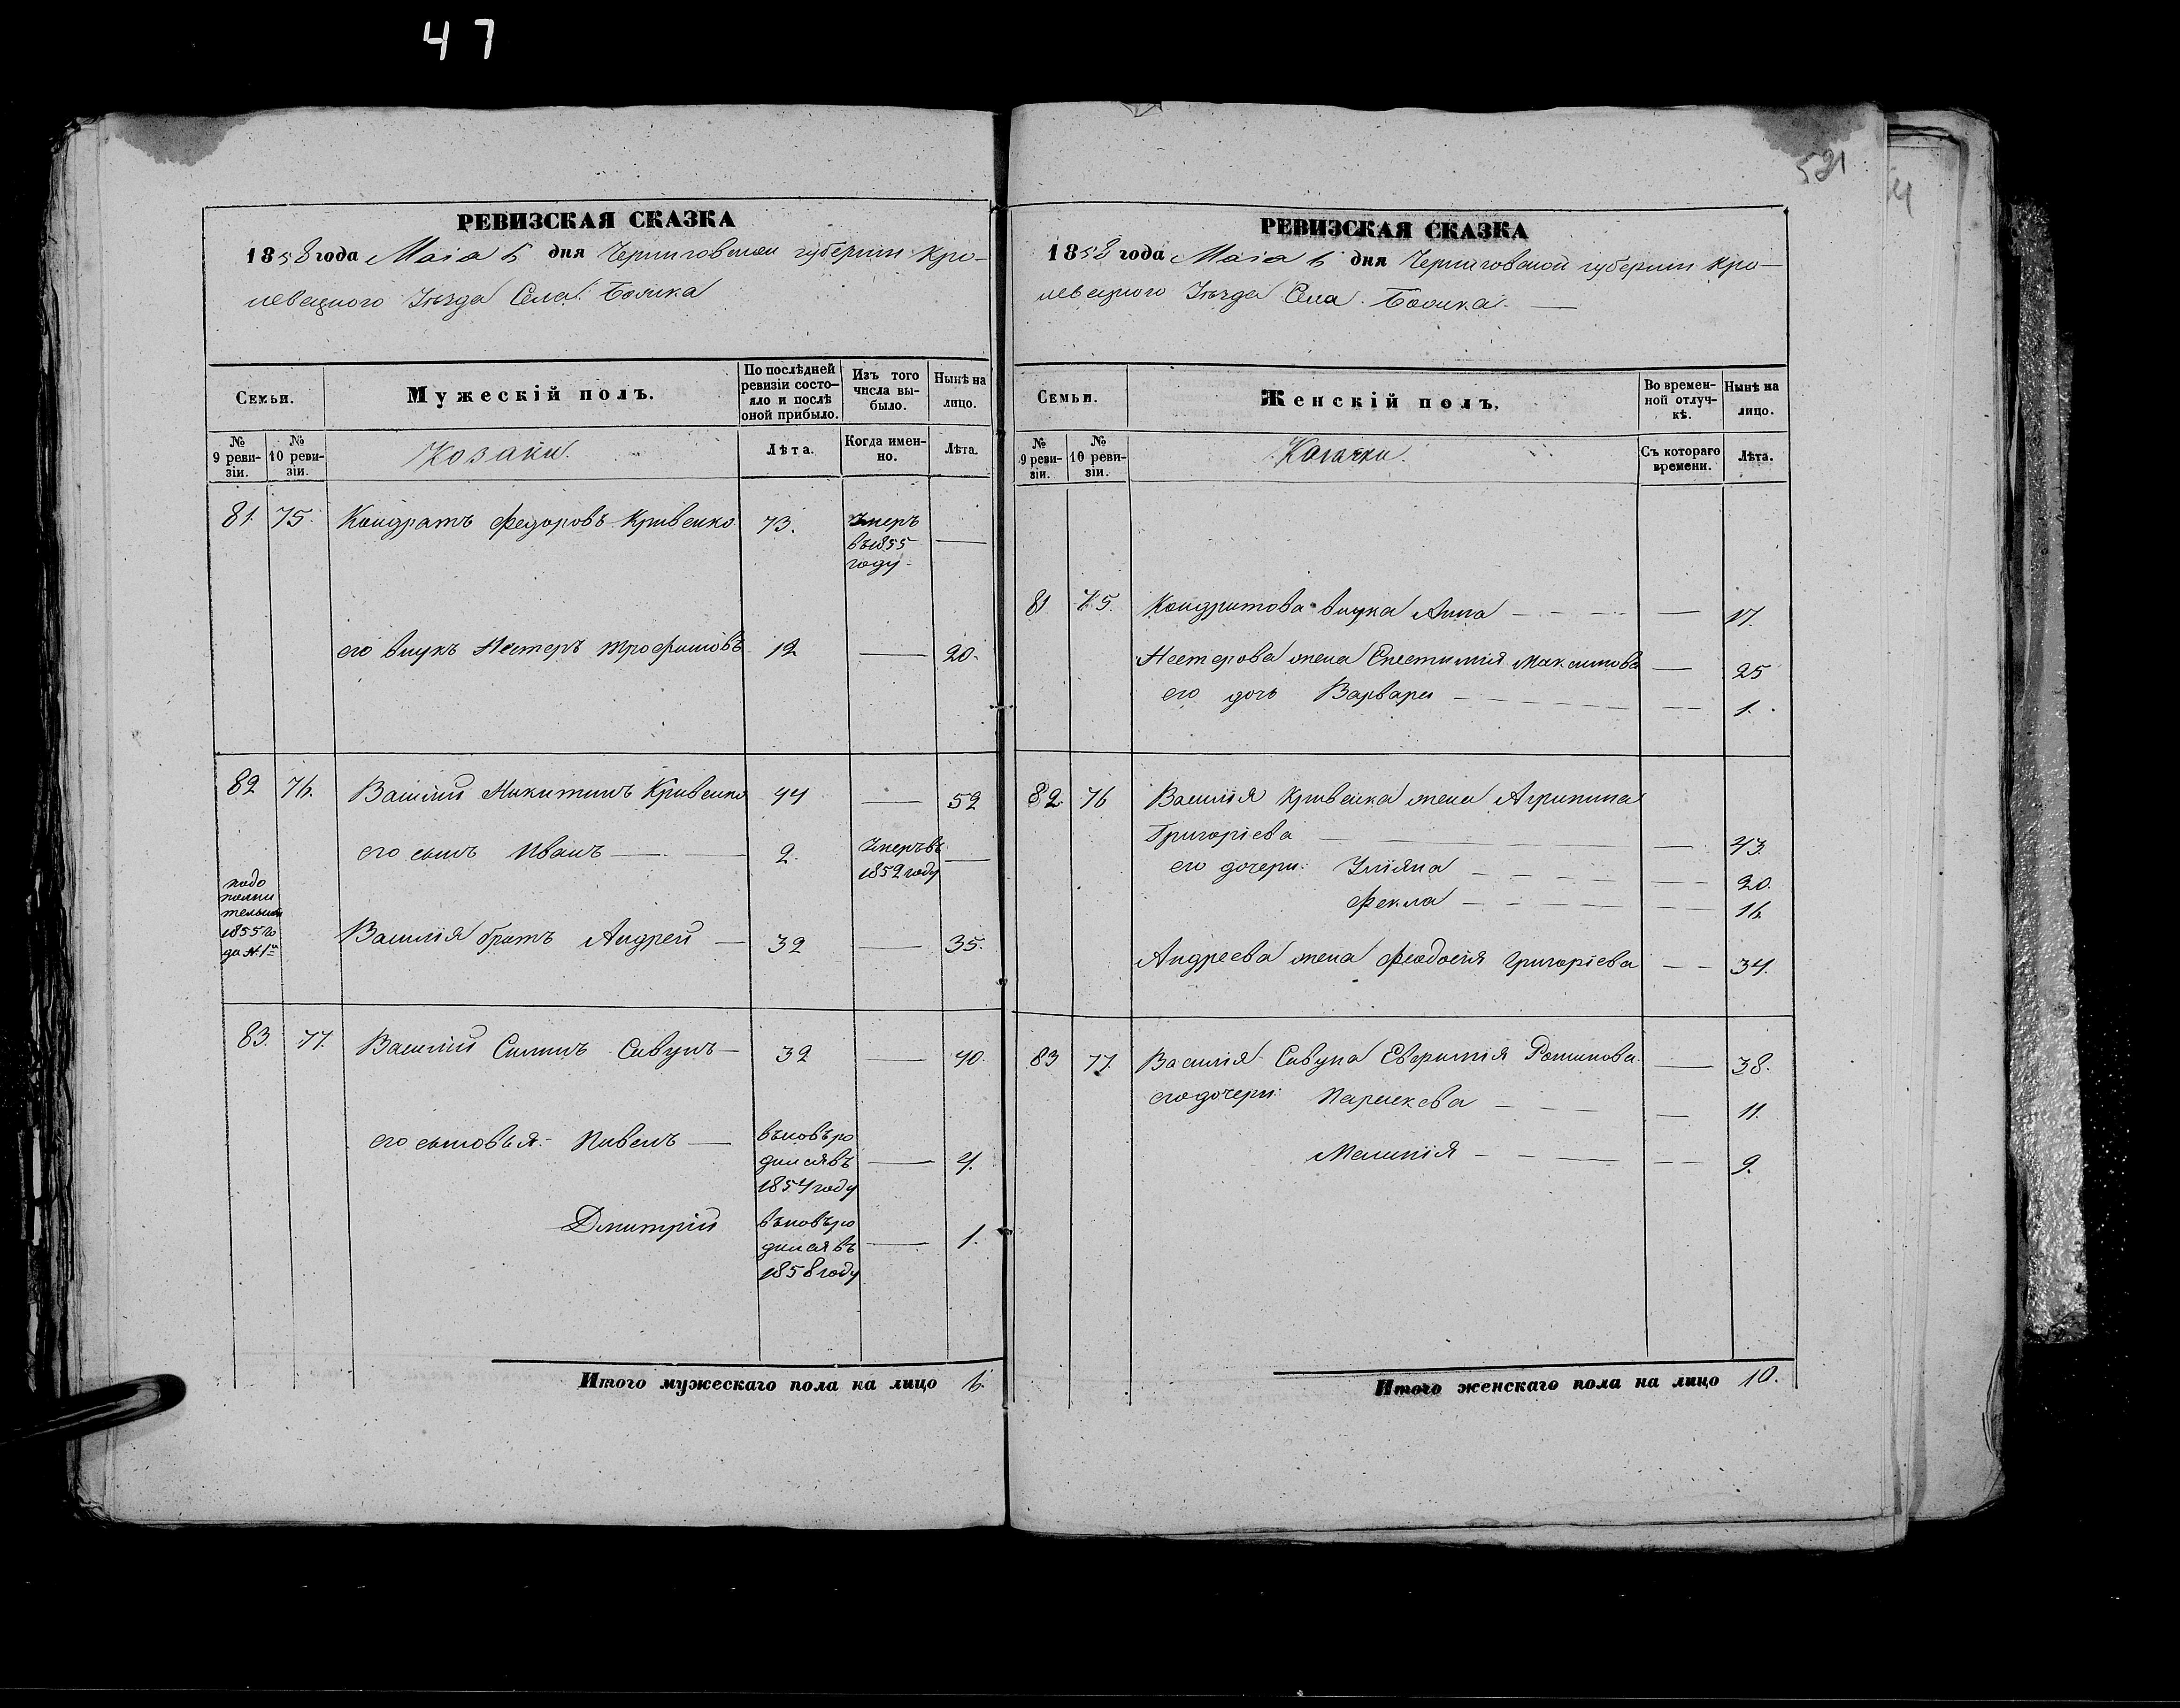 47
521
РЕВИЗСКАЯ СКАЗКА
1858 года Маія 6 дня Черниговской губерніи Кро-
левецкаго Уѣзда Села
Семьи.
Мужескій полъ.
По послѣдней ревизіи состо-
яло и послѣ оной прибыло.
Изъ того числа вы-
было.
Нынѣ на лицо.
№ 9 реви-
зіи.
№ 10 реви-
зіи.
Козаки.
Лѣта.
Когда имен-
но.
Лѣта.
81. 75. Кондратъ Федоровъ Кривенко 73. Умеръ
въ 1855
году
его внукъ Нестеръ Трофимовъ 12 — 20.
82 76. Василій Никитинъ Кривенко 44 — 52
его сынъ Иванъ — 2. Умеръ въ
1852 году —
подо
полни
тельной
1855 го
да №1й
Василія братъ Андрей — 32 — 35.
83. 77. Василій Силинъ Сивунъ — 32 — 40.
его сыновья: Павелъ — вновь ро
дился въ — 4.
1854 году
Дмитрій вновь ро
дился въ — 1.
1858 году
Итого мужескаго пола на лицо 6.
РЕВИЗСКАЯ СКАЗКА
1858 года Маія 6 дня Черниговской губерніи Кро-
левецкаго Уѣзда Села
Семьи.
Женскій полъ.
Во времен-
ной отлуч-
кѣ.
Нынѣ на лицо.
№ 9 реви-
зіи.
№ 10 реви-
зіи.
Козачки.
Съ котораго времени.
Лѣта.
81 75. Кондратова внука Анна — 17.
Нестерова жена Максимова — 25
его дочь Варвара — 1.
82. 76 Василія Кривенка жена Агрипина
Григоріева — 43.
его дочери: Уліяна — 20.
Фекла — 16
Андреева жена Феодосія Григоріева — 34.
83 77. Василія Сивуна Евфимія — 38.
его дочери: Параскева — 11.
Меланія — 9.
Итого женскаго пола на лицо 10.